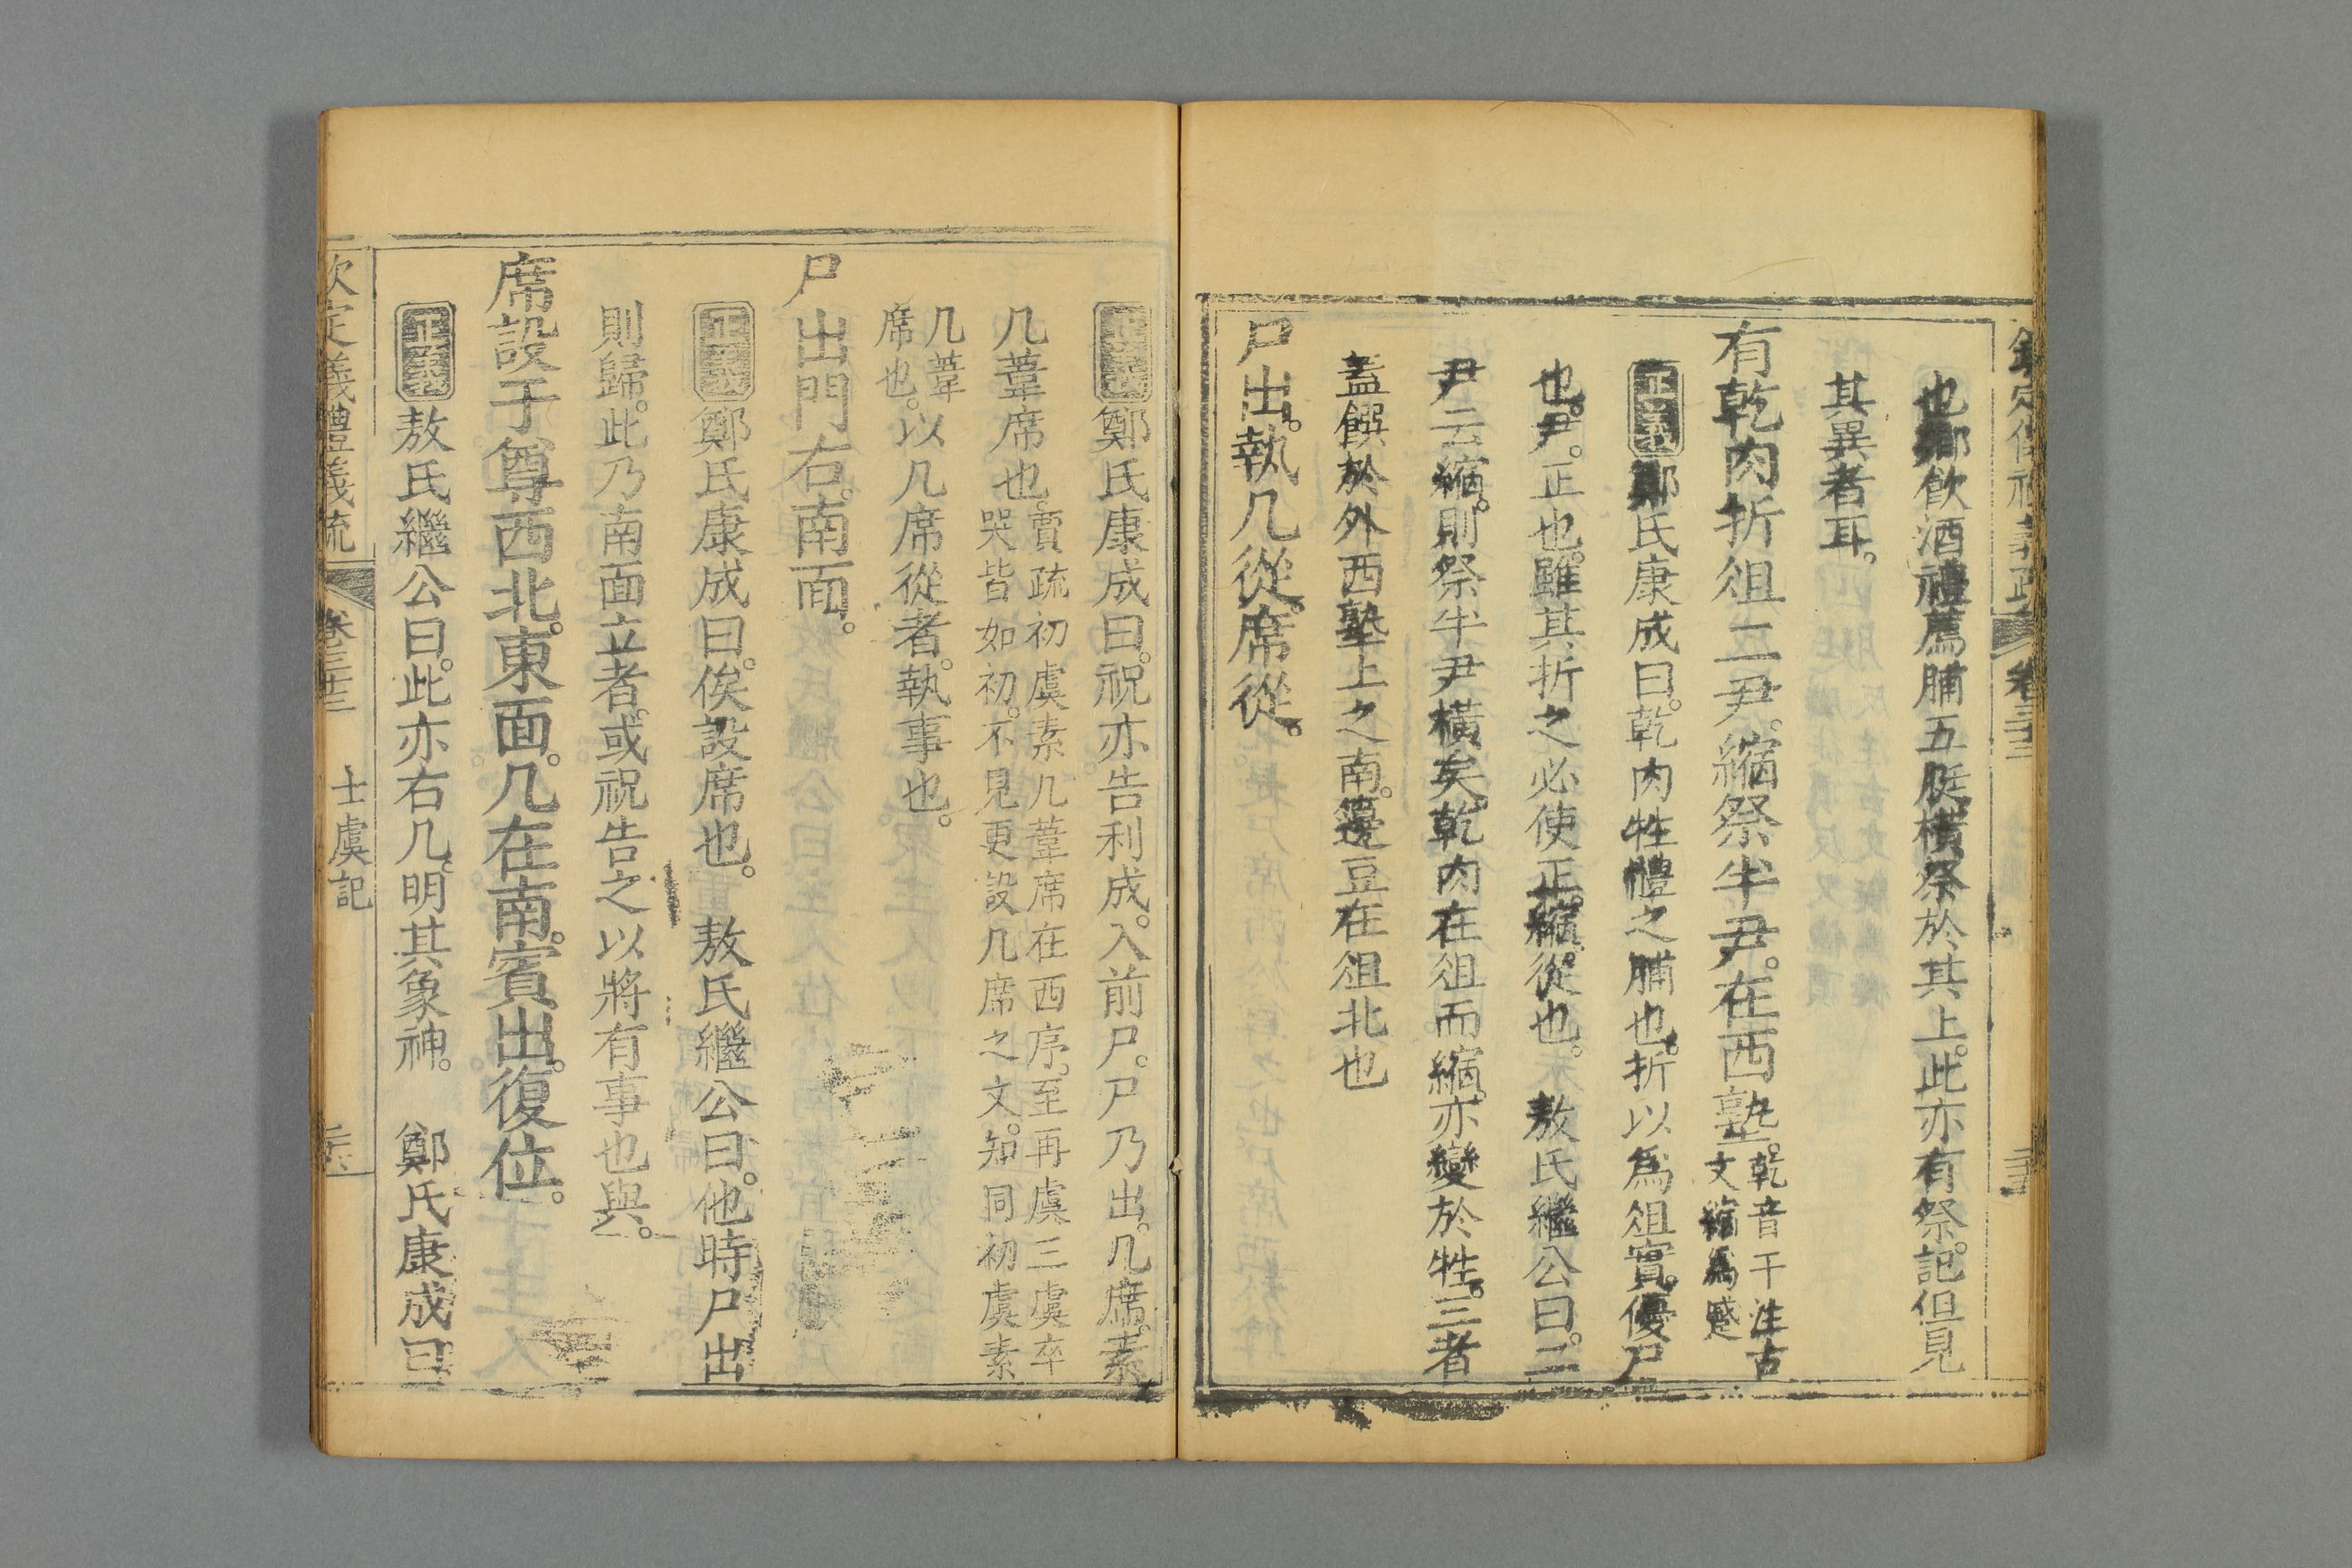 也鄉飲酒禮薦脯五脡橫祭於其上。此亦有祭。記但見
其異者耳。
有乾肉折俎二尹。縮祭半尹。在西塾。乾音干注古文縮爲蹙
正義鄭氏康成曰。乾肉牲體之脯也。折以爲俎實。優尸
也。尹。正也。雖其折之必使正。縮。從也。 敖氏繼公曰。二
尹云縮。則祭半尹橫矣。乾肉在俎而縮。亦變於牲。三者
蓋饌於外西塾上之南。籩豆在俎北也
尸出。執几從。席從。
正義鄭氏康成曰。祝亦告利成。入前尸。尸乃出。几席。素
几葦席也。賈疏初虞素几葦席在西序。至再虞三虞卒哭皆如初。不見更設几席之文。知同初虞素
几葦席也。以几席從者。執事也。
尸出門右。南面。
正義鄭氏康成曰。俟設席也。 敖氏繼公曰。他時尸出
則歸。此乃南面立者。或祝告之以將有事也與。
席設于尊西北。東面。几在南。賓出。復位。
正義敖氏繼公曰。此亦右几。明其象神。 鄭氏康成曰
欽定義禮義疏 卷三十三 士虞記